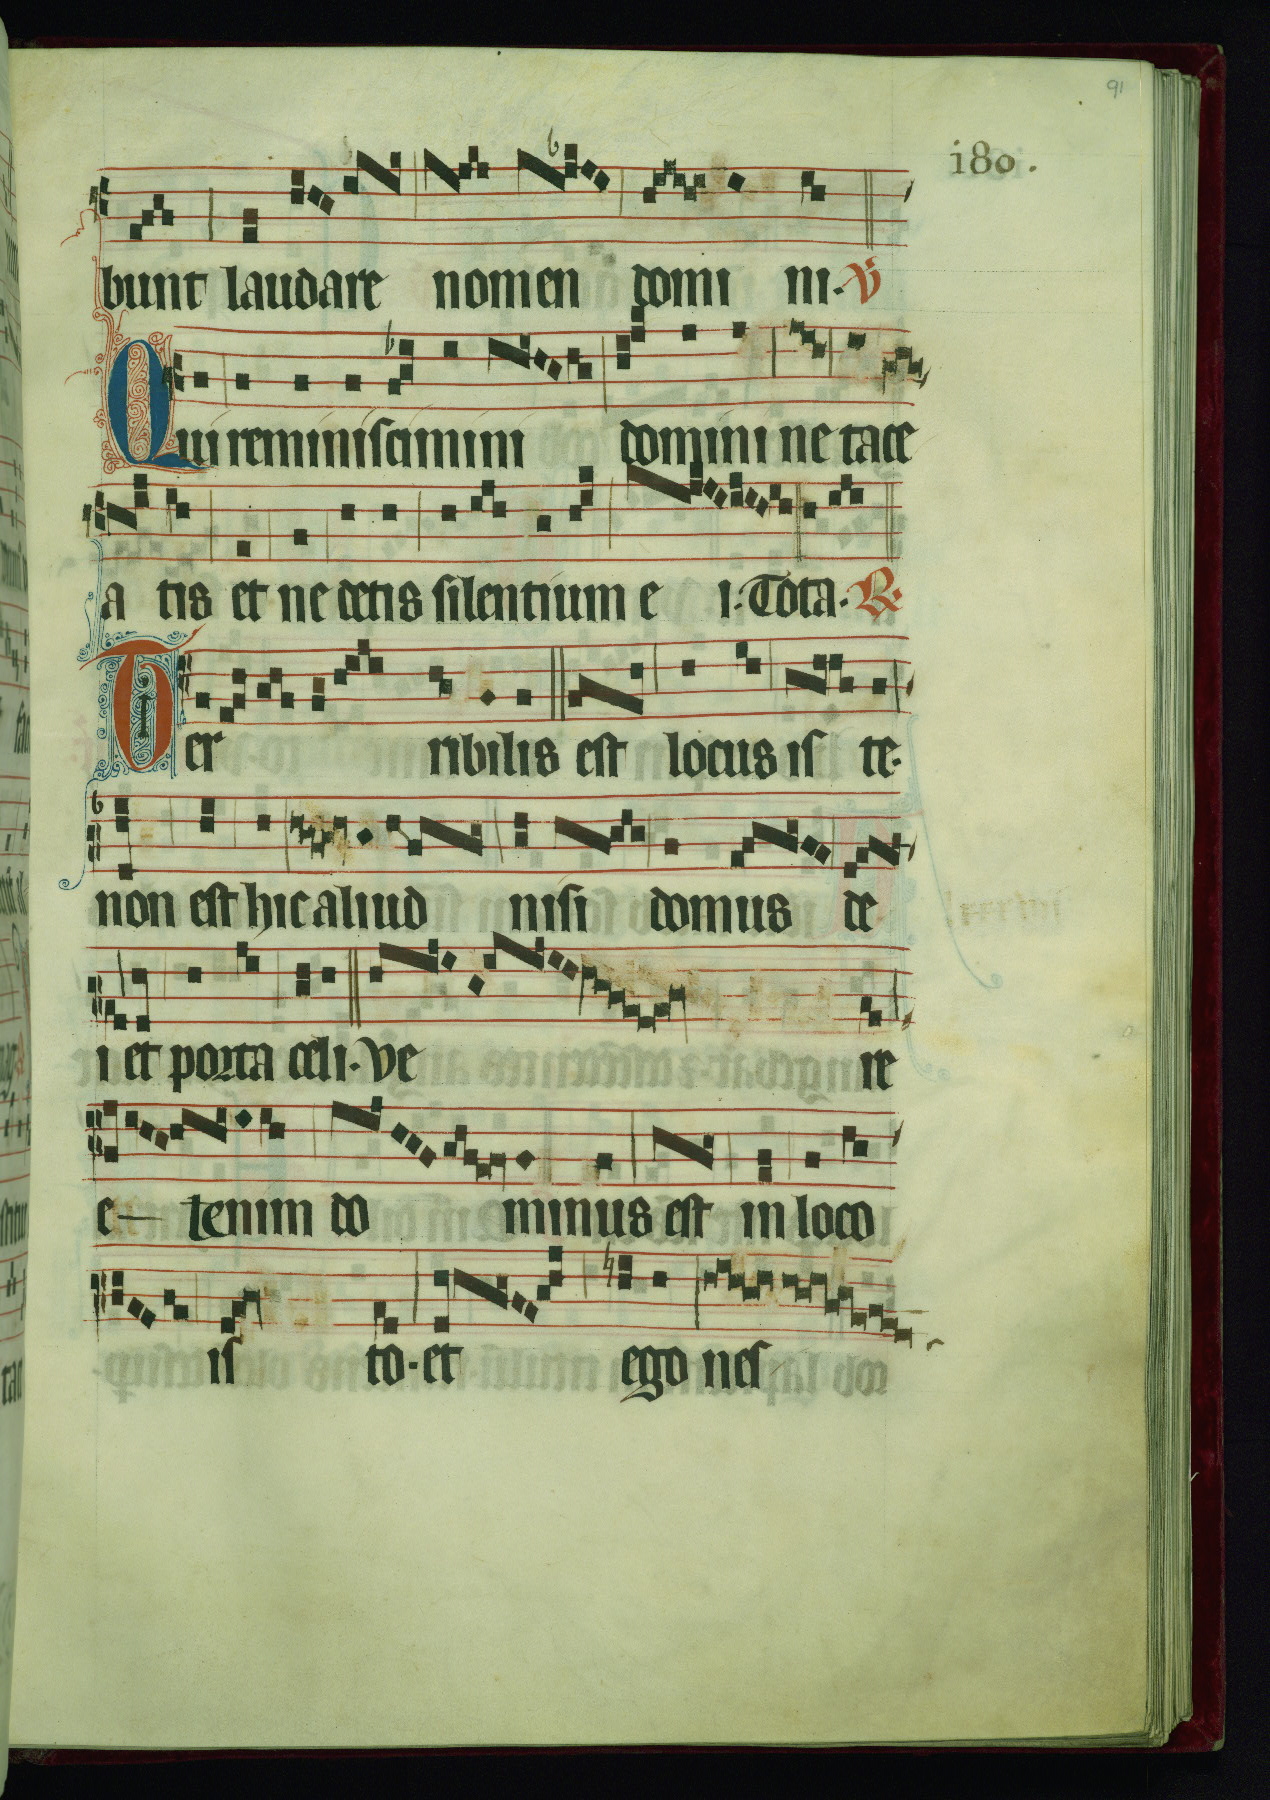 91
i80.
bunt laudare nomen domi ni. V
Qui reminiscimini domini ne tace
a tis et ne detis silentium e i. Tota. R.
Ter ribilis est locus is te.
non est hic aliud nisi domus de
i et porta celi. Ve re
e tenim do minus est in loco
is to. et ego nes